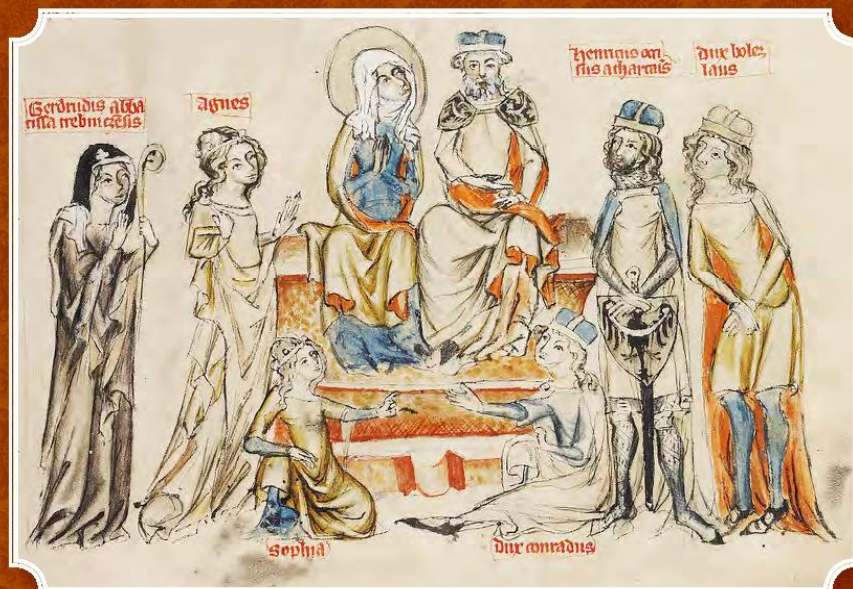 Gerdrudis abba
tissa trebnicẽsis
agnes
Henricus occi
sus a thartaris
dux boles
laus
sophia
dux conradus